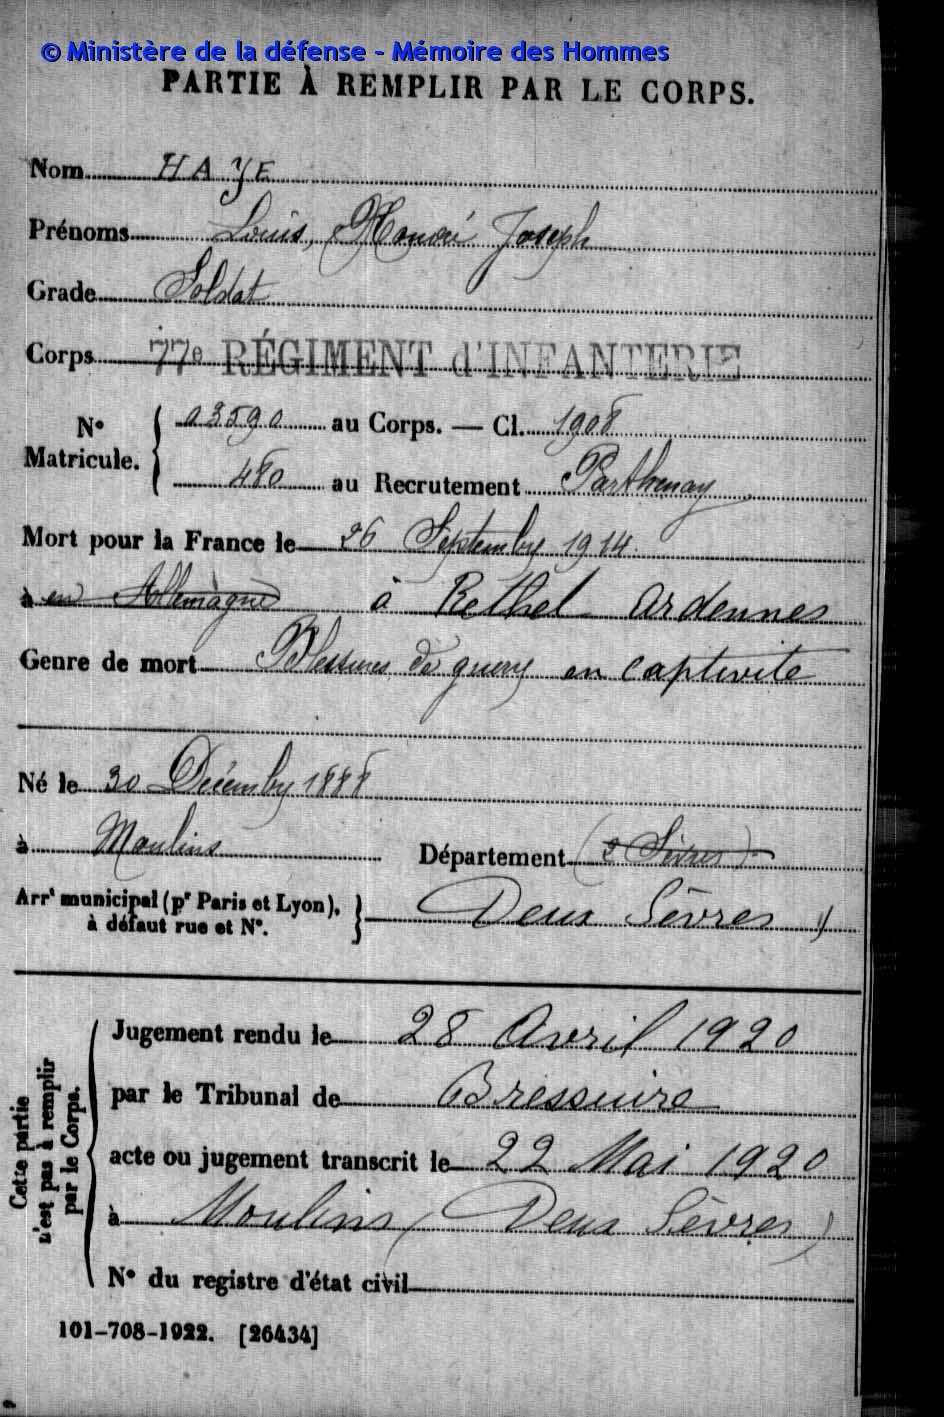 © Ministère de la défense - Mémoire des Hommes
PARTIE À REMPLIR PAR LE CORPS.
Nom HAYE
Prénoms Louis, Honoré Joseph
Grade Soldat
Corps 77e RÉGIMENT d'INFANTERIE
N° Matricule. 03590 au Corps. — Cl. 1908
480 au Recrutement Parthenay
Mort pour la France le 26 Septembre 1914.
à en Allemagne à Rethel Ardennes
Genre de mort Blessures de guerre en captivité
Né le 30 Décembre 1888
à Moulins Département (2 Sèvres)
Arrt municipal (pr Paris et Lyon), à défaut rue et N°. Deux Sèvres )
Cette partie n'est pas à remplir par le Corps.
Jugement rendu le 28 Avril 1920
par le Tribunal de Bressuire
acte ou jugement transcrit le 22 Mai 1920
à Moulins (Deux Sèvres)
N° du registre d'état civil
101-708-1922. [26434]